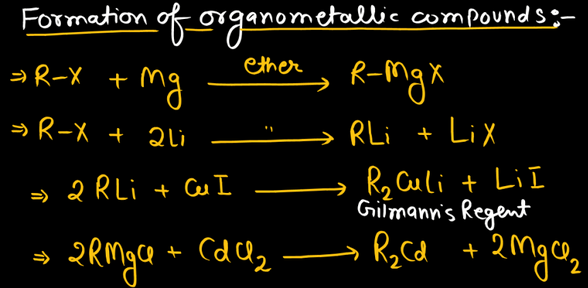 Formation of organometallic compounds:-
⇒ R-X + Mg ether → R-MgX
⇒ R-X + 2Li " → RLi + LiX
⇒ 2RLi + CuI → R₂CuLi + LiI
Gilmann's Regent
⇒ 2RMgCl + CdCl₂ → R₂Cd + 2MgCl₂